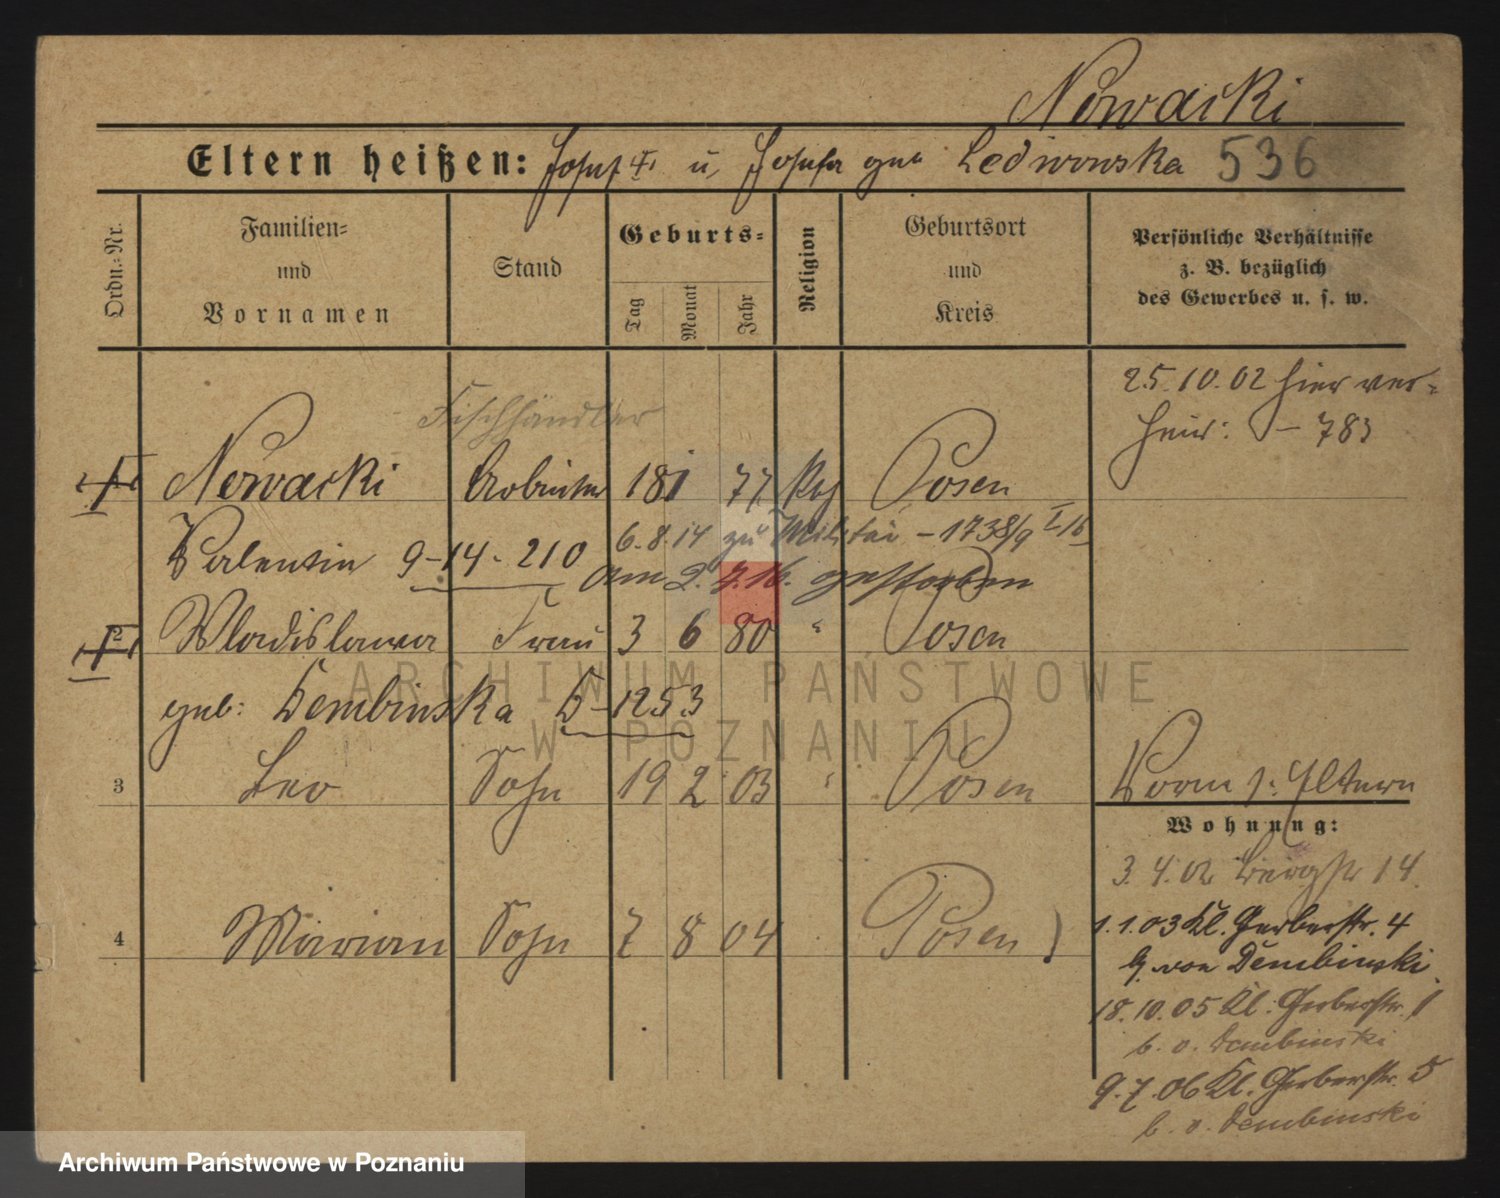 Nowacki
Eltern heißen: Josef u. Josefa geb. Ledwowska 536
Ordn.-Nr.
Familien-
und
Vornamen
Stand
Geburts-
Tag Monat Jahr
Religion
Geburtsort
und
Kreis
Persönliche Verhältnisse
z. B. bezüglich
des Gewerbes u. s. w.
25.10.02 hier ver-
heir: - 783
Fischhändler
Nowacki Arbeiter 18 1 77 Posen
Valentin 9-14-210
6.8.14 zu Militär - 1738/9 I/16
am 2. 7.16. gestorben
2 Wladislawa Frau 3 6 80 " Posen
geb: Dembinska D-1253
3 Leo Sohn 19 2 03 " Posen
Vorm s. Eltern
4 Marian Sohn 7 8 04 Posen
Wohnung:
3.4.02 Bergstr 14.
1.1.03 Kl. Gerberstr. 4
b. von Dembinski
18.10.05 Kl. Gerberstr. 1
b. v. Dembinski
9.7.06 Kl. Gerberstr. 5
b. v. Dembinski
ARCHIWUM PAŃSTWOWE
W POZNANIU
Archiwum Państwowe w Poznaniu